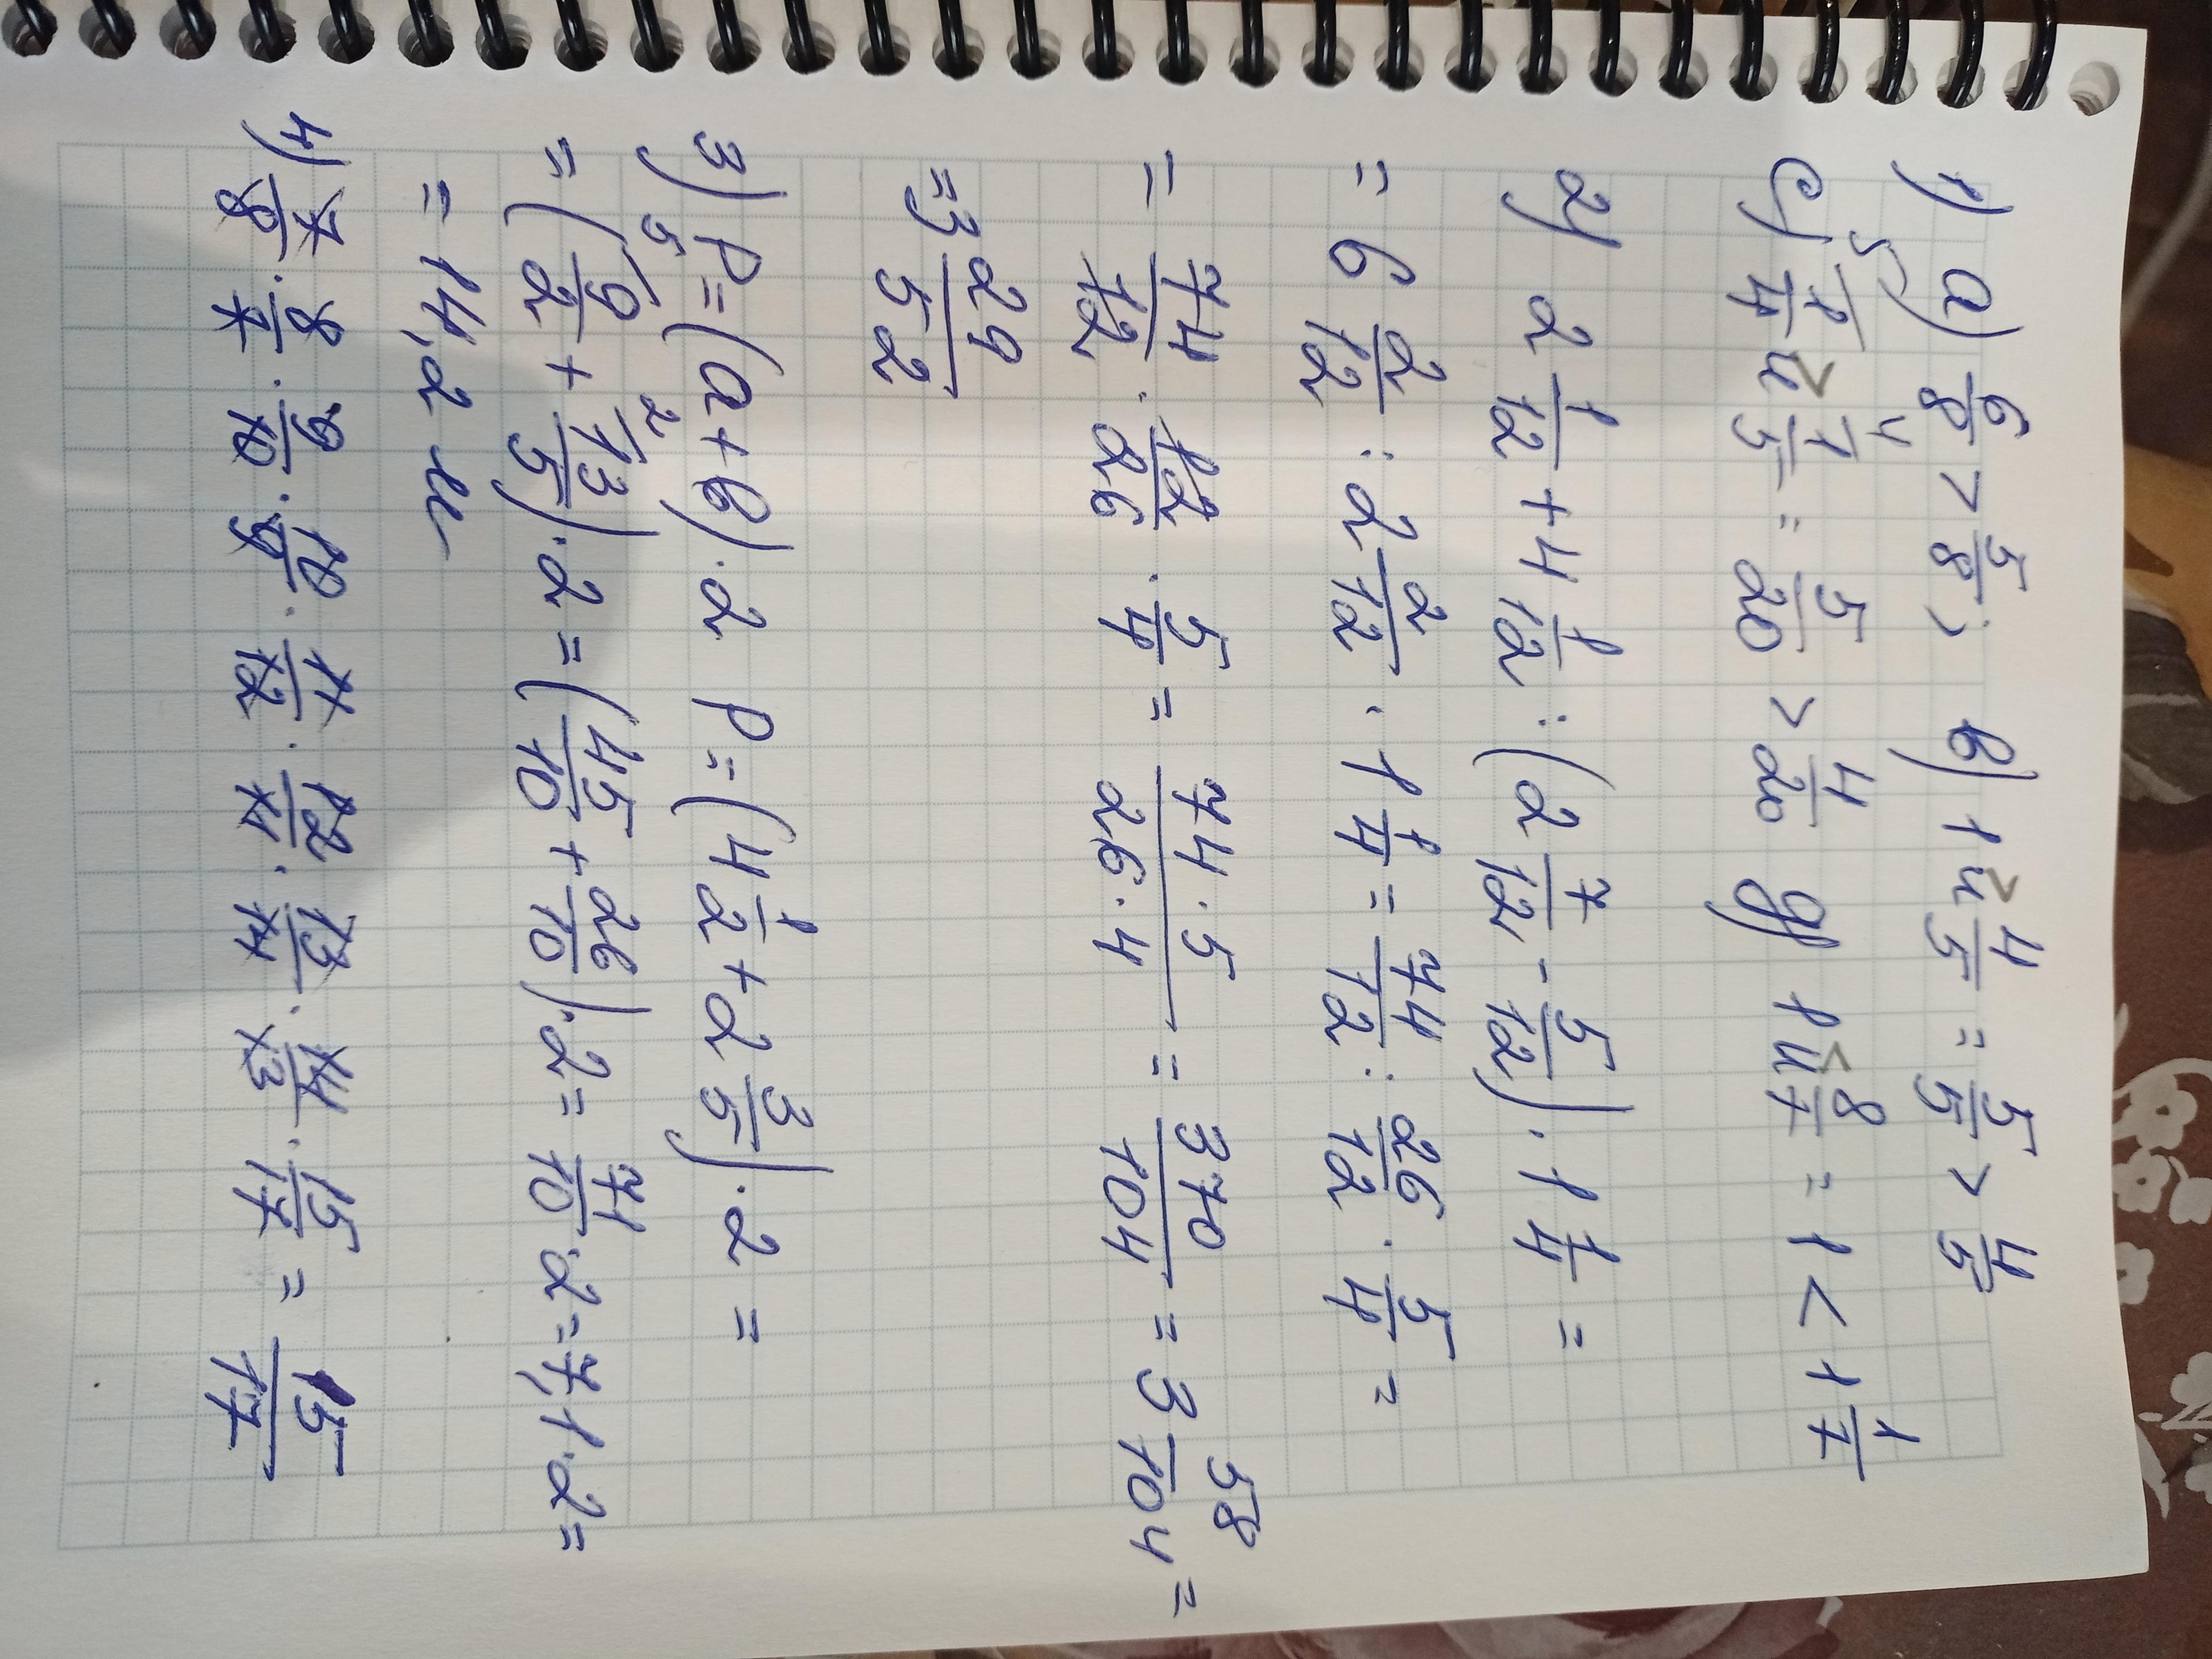 1) a) 6/8 > 5/8; в) 1 и > 4/5 = 5/5 > 4/5
c) 5 1/4 и > 4 1/5 = 5/20 > 4/20 g) 1 и < 8/7 = 1 < 1 1/7
2) 2 1/12 + 4 1/12 : (2 7/12 - 5/12) · 1 1/4 =
= 6 2/12 : 2 2/12 · 1 1/4 = 74/12 : 26/12 · 5/4 =
= 74/12 · 12/26 · 5/4 = 74·5/26·4 = 370/104 = 3 58/104 =
=3 29/52
3) P=(a+в)·2 P=(4 1/2 + 2 3/5)·2 =
= (5 9/2 + 2 13/5)·2 = (45/10 + 26/10)·2= 71/10·2=7,1·2=
= 14,2 м
4) 7/8 · 8/7 · 9/10 · 10/9 · 11/12 · 12/11 · 13/14 · 14/13 · 15/17 = 15/17